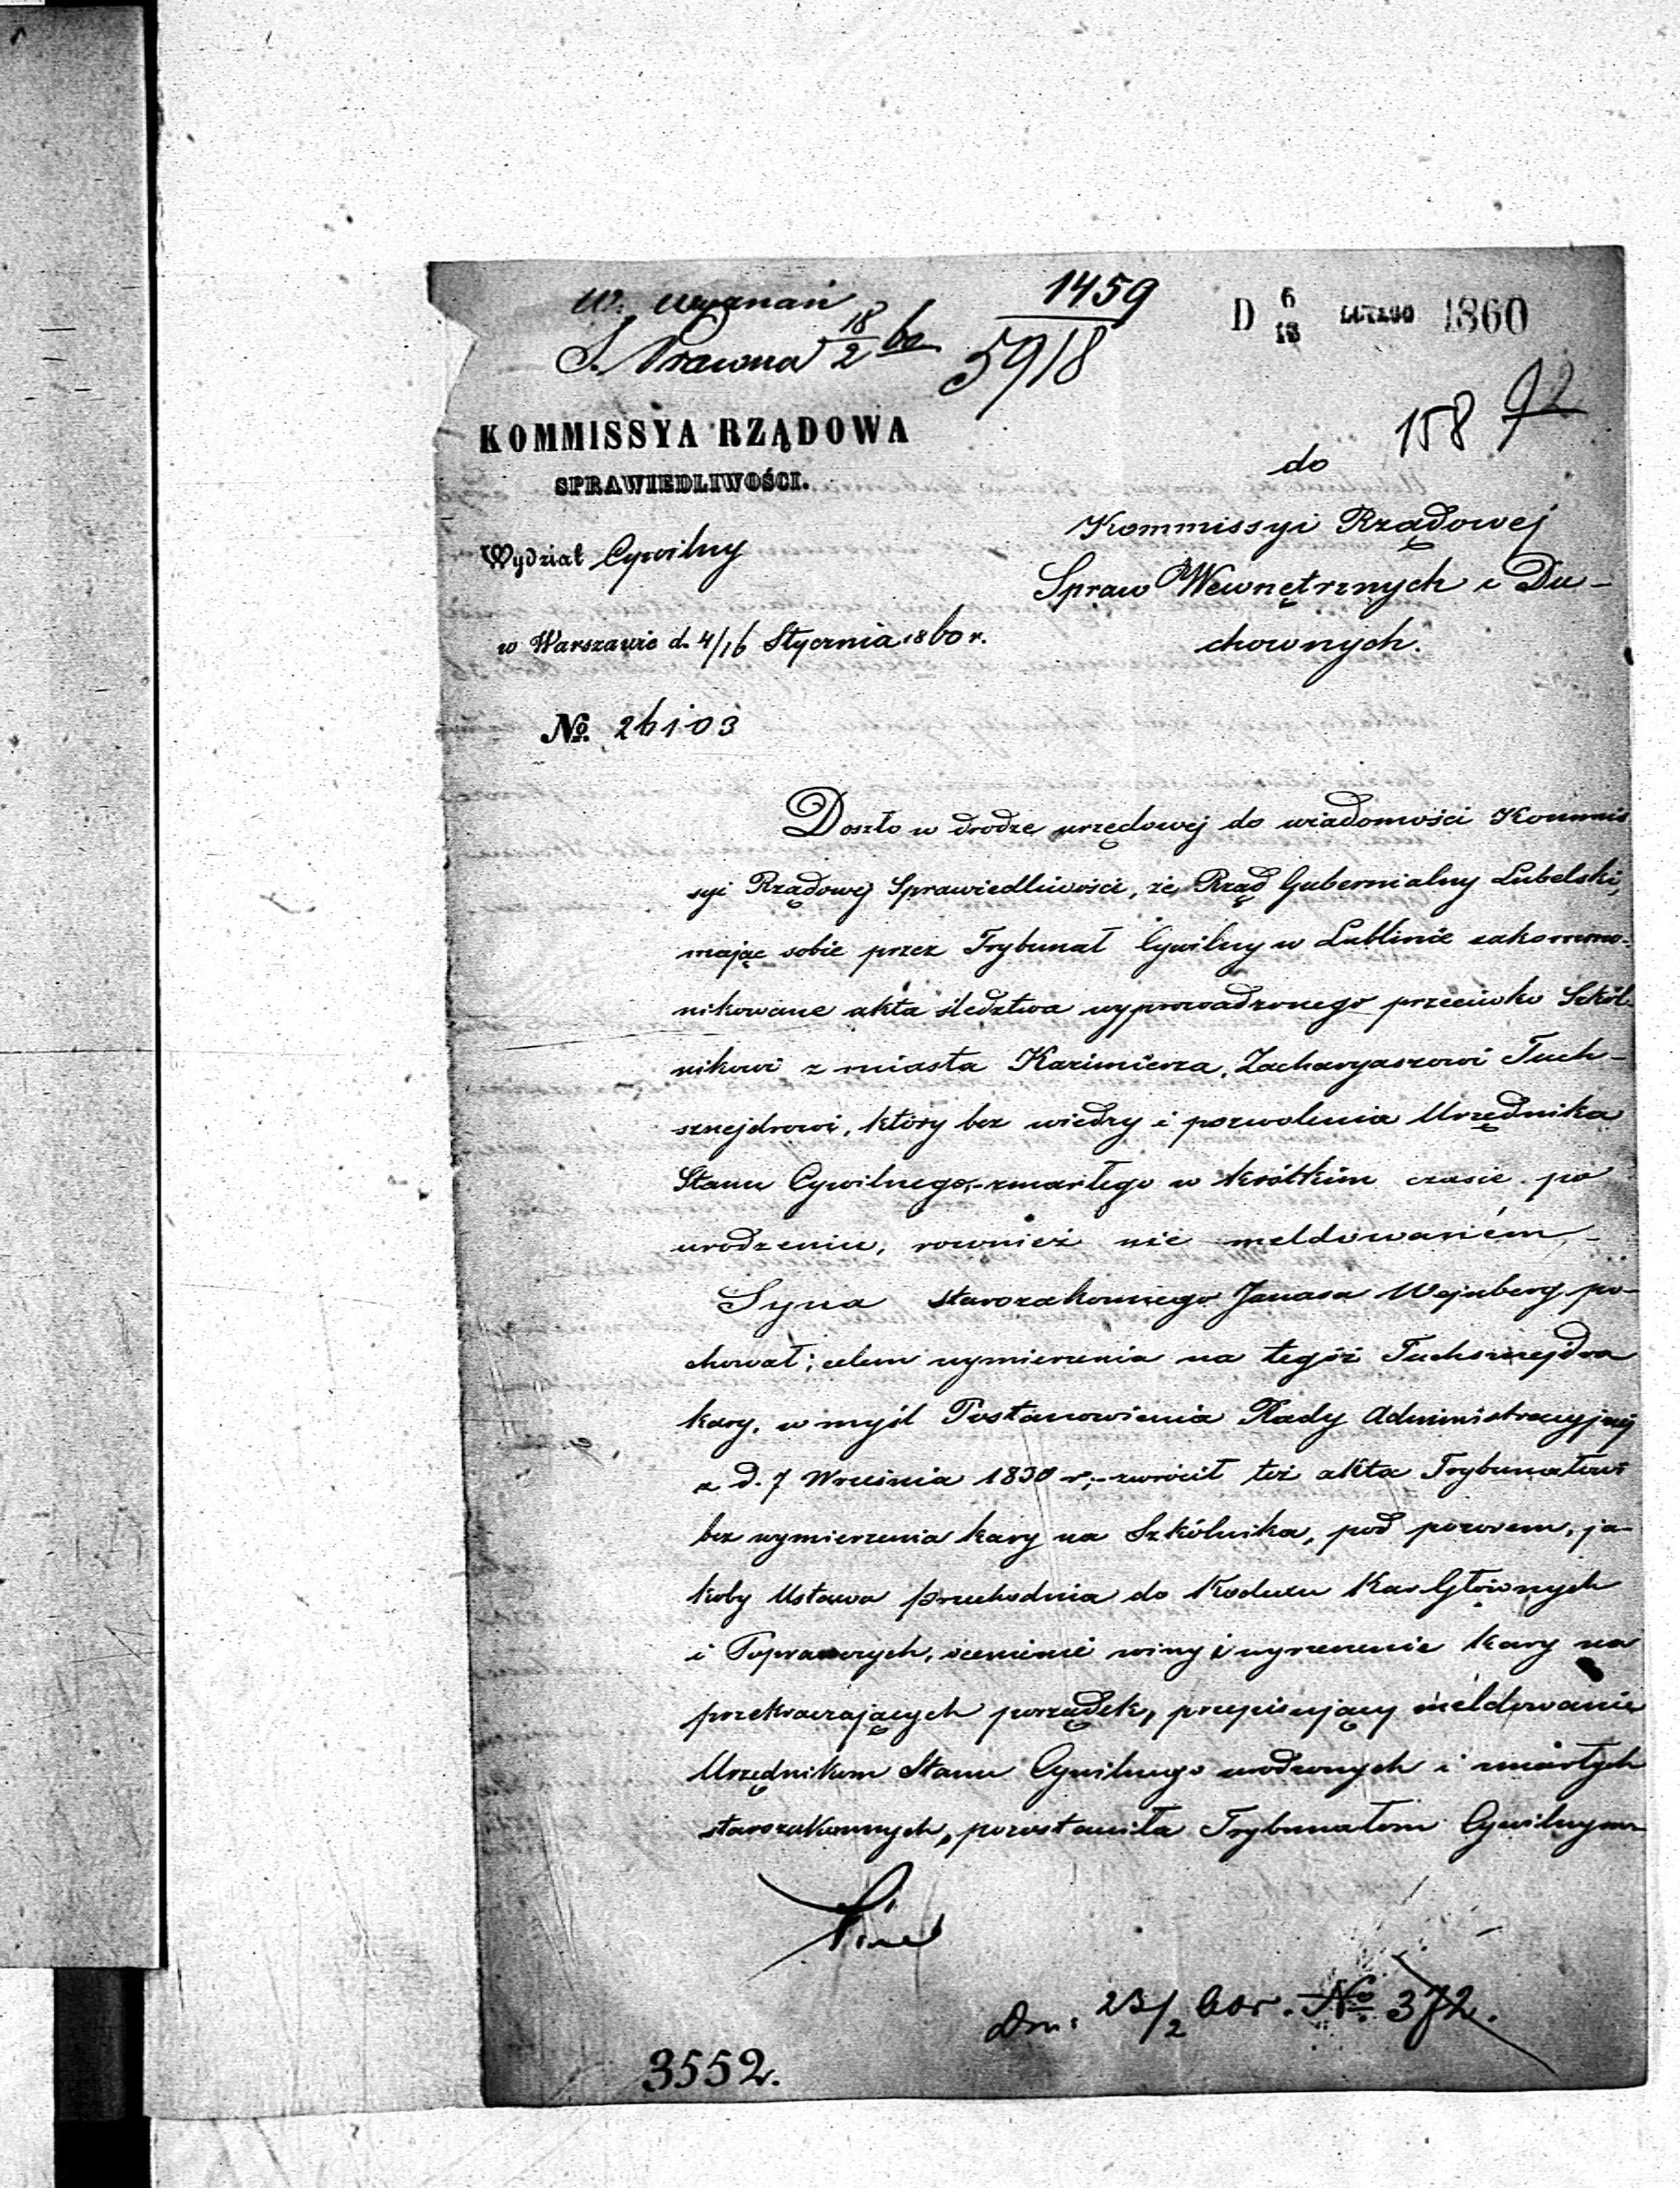 W. wyznań
S. Prawna 18/2 60
1459
5918
D 6/18 LUTEGO 1860
158 92
KOMMISSYA RZĄDOWA
SPRAWIEDLIWOŚCI.
Wydział Cywilny
w Warszawie d. 4/16 Stycznia 1860 r.
No. 26103
do
Kommissyi Rządowej
Spraw Wewnętrznych i Du-
chownych.
Doszło w drodze urzędowej do wiadomości Kommis
syi Rządowej Sprawiedliwości, że Rząd Gubernialny Lubelski,
mając sobie przez Trybunał Cywilny w Lublinie zakommu-
nikowane akta śledztwa wyprowadzonego przeciwko Szkól-
nikowi z miasta Kazimierza, Zacharyaszowi Tuch-
sznejdrowi, który bez wiedzy i pozwolenia Urzędnika
Stanu Cywilnego,- zmarłego w krótkim czasie po
urodzeniu, rownież nie meldowaniem -
Syna starozakonnego Janasa Wejnberg po-
chował; celem wymierzenia na tegóż Tuchsznejdra
kary, w myśl Postanowienia Rady Administracyjnej
z d. 7 Września 1830 r.,- zwrócił też akta Trybunałowi
bez wymierzenia kary na Szkólnika, pod pozorem, ja-
koby Ustawa przechodnia do Kodexu Kar Głównych
i Poprawczych, ocenienie winy i wyrzeczenie kary na
przekraczających porządek, przepisujący meldowanie
Urzędnikom Stanu Cywilnego urodzonych i zmarłych
starozakonnych, pozostawiła Trybunałom Cywilnym
Dn: 23/2 60 r. No 372.
3552.